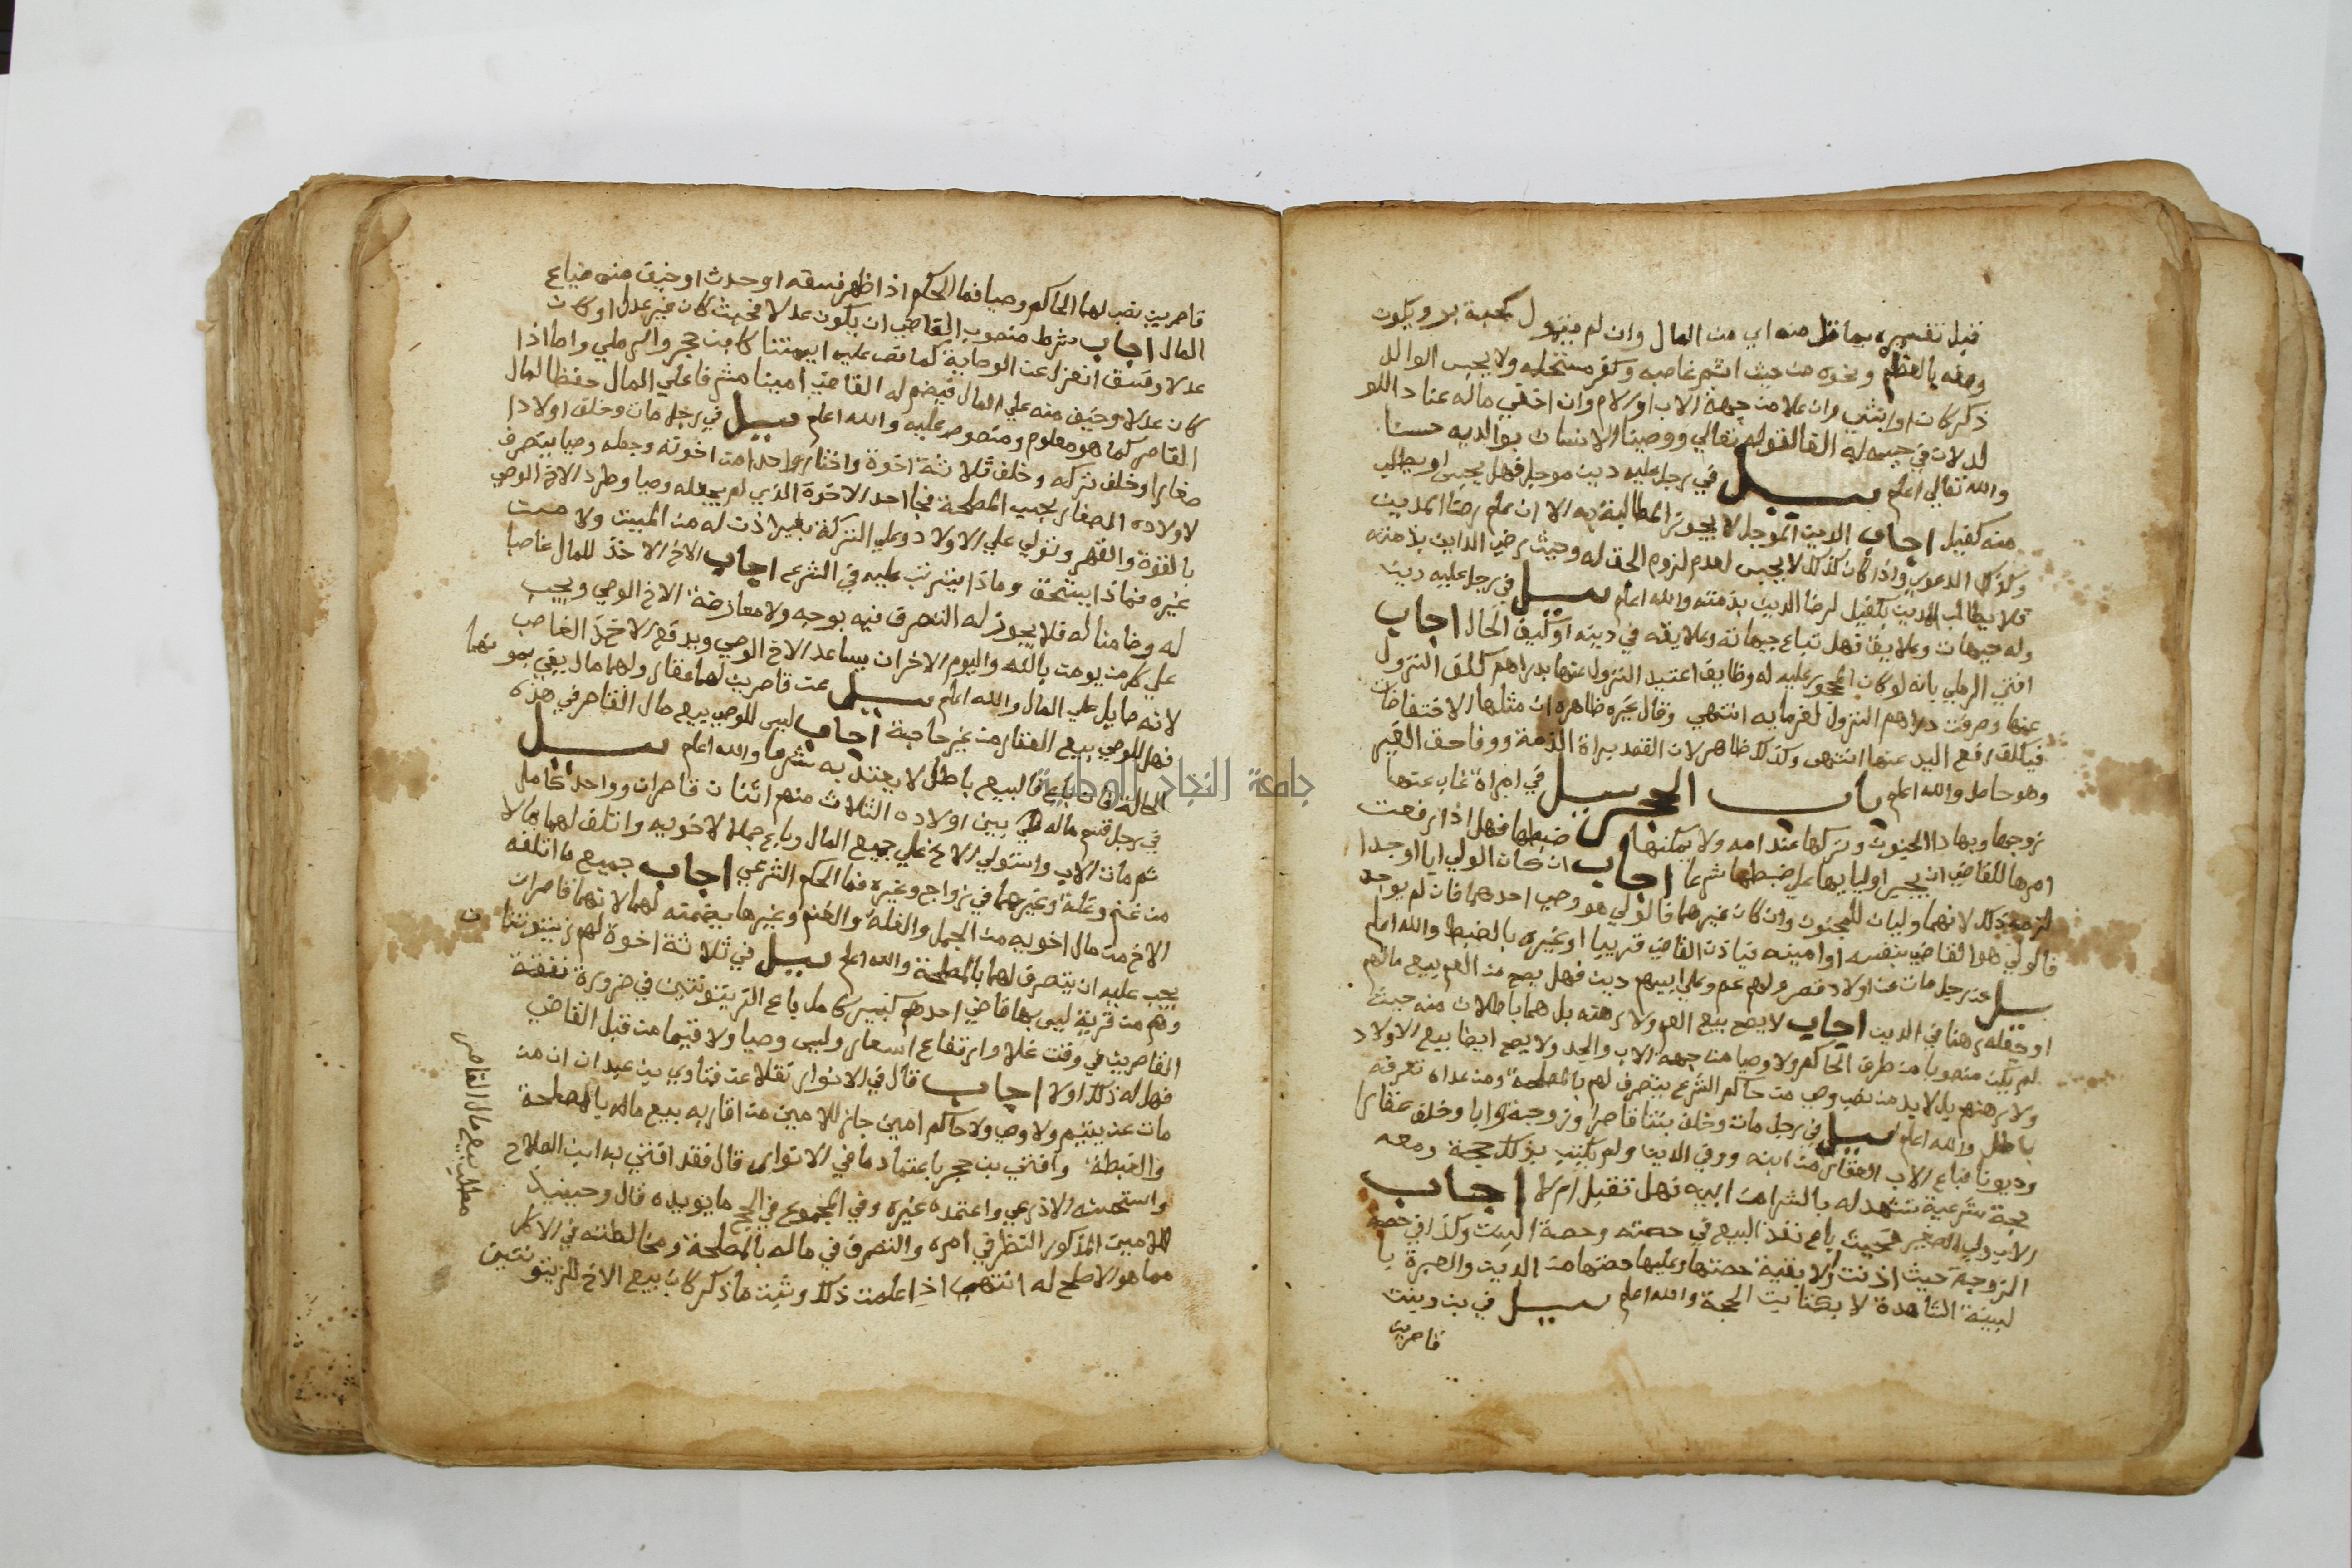 قبل تفسيره بما قل منه اي من المال وان لم يتمول كحبة بر ويكون
وصفه بالعظم ونحوه من حيث اثم غاصبه وكفر مستحله ولا يحبس الوالد
ذكر كان او انثي وان علا من جهة الاب او الام وان اخفي ماله عنادا للو
لد لان في حبسه له القا لقوله تعالي ووصينا الانسان بوالديه حسنا
والله تعالي اعلم سيل في رجل عليه دين موجل فهل يحبس او يطلب
منه كفيل اجاب الدين الموجل لا يجوز المطالبة به الا ان علم رضا المدين
وكذلك الدعوي واذا كان كذلك لا يحبس لعدم لزوم الحق له وحيث رضي الداين بذمته
فلا يطالب المدين بكفيل لرضا الدين بذمته والله اعلم سيل في رجل عليه دين
وله جيهات وعلايق فهل تباع جيهاته وعلايقه في دينه او كيف الحال اجاب
افتي الرملي بانه لو كان المحجور عليه له وظايف اعتيد النزول عنها بدراهم كلف النزول
عنها وصرفت دراهم النزول لغرمايه انتهي وقال غيره ظاهره ان مثلها الاختصاصات
فيكلف رفع اليد عنها انتهي وكذلك ظاهر لان القصد براة الذمة ووفا حق الغير
وهو حاصل والله اعلم باب الحجر سيل في امراة غاب عنها
زوجها وبها دا الجنون وتركها عند امه ولا يمكنها ضبطها فهل اذا رفعت
امرها للقاضي ان يجبر اوليايها علي ضبطها شرعا اجاب ان كان الولي ابا او جدا
لزمه ذلك لانهما وليان للمجنون وان كان غيرهما فالولي هو وصي احدهما فان لم يوجد
فالولي هو القاضي بنفسه او امينه فياذن القاضي قريبا او غيره بالضبط والله اعلم
سيل عن رجل مات عن اولاد قصر ولهم عم وعلي ابيهم دين فهل يصح من العم بيع مالهم
او جعله رهنا في الدين اجاب لا يصح بيع العم ولا رهنه بل هما باطلان منه حيث
لم يكن منصوبا من طرف الحاكم ولا وصيا من جهة الاب والجد ولا يصح ايضا بيع الاولاد
ولا رهنهم بل لا بد من نصب وصي من حاكم الشرع يتصرف لهم بالمصلحة ومن عداه تصرفه
باطل والله اعلم سيل في رجل مات وخلف بنتا قاصرا وزوجة وابا وخلف عقارا
وديونا فباع الاب العقار من ابنه ووفي الدين ولم يكتب بذلك حجة ومعه
حجة شرعية تشهد له بالشرا من ابيه فهل تقبل ام لا اجاب
الاب ولي الصغير فحيث باع نفذ البيع في حصته وحصة البنت وكذا في حصة
الزوجة حيث اذنت والا بقية حصتها وعليها حصتها من الدين والعبرة با
لبينة الشاهدة لا بكتابت الحجة والله اعلم سيل في بن وبنت
قاصرين
قاصرين نصب لهما الحاكم وصيا فما الحكم اذا ظهر فسقه او حدث او خيف منه ضياع
المال اجاب شرط منصوب القاضي ان يكون عدلا فحيث كان غير عدل او كان
عدلا وفسق انعزل عن الوصاية كما نص عليه ايمتنا كابن حجر والرملي واما اذا
كان عدلا وخيف منه علي المال فيضم له القاضي امينا مشرفا علي المال حفظا لمال
القاصر كما هو معلوم ومنصوص عليه والله اعلم سيل في رجل مات وخلف اولادا
صغارا وخلف تركه وخلف ثلاثة اخوة واختار واحدا من اخوته وجعله وصيا يتصرف
لاولاده الصغار بحسب المصلحة فجا احد الاخوة الذي لم يجعله وصيا وطرد الاخ الوصي
بالقوة والقهر وتولي علي الاولاد وعلي التركة بغير اذن له من الميت ولا من
غيره فماذا يستحق وماذا يترتب عليه في الشرع اجاب الاخ الاخذ للمال غاصبا
له وضامنا له فلا يجوز له التصرف فيه بوجه ولا معارضة الاخ الوصي ويجب
علي كل من يومن بالله واليوم الاخر ان يساعد الاخ الوصي ويدفع الاخ الغاصب
لانه صايل علي المال والله اعلم سيل عن قاصرين لهما عقار ولهما مال يفي بمونهما
فهل للوصي بيع العقار من غير حاجة اجاب ليس للوصي بيع مال القاصر في هذه
الحالة فان باع فالبيع باطل لا يعتد به شرعا والله اعلم سيل
في رجل قسم ماله بين اولاده الثلاث منهم اثنان قاصران وواحد كامل
ثم مات الاب واستولي الاخ علي جميع المال وباع جملا لاخويه واتلف لهما مالا
من غنم وغلة وغيرهما في زواج وغيره فما الحكم الشرعي اجاب جميع ما اتلفه
الاخ من مال اخويه من الجمل والغلة والغنم وغيرها يضمنه لهما لانهما قاصران
يجب عليه ان يتصرف لهما بالمصلحة والله اعلم سيل في ثلاثة اخوة لهم زيتونتان
وهم من قرية ليس بها قاضي احدهم كبير كامل باع الزيتونتين في ضرورة نفقة
القاصرين في وقت غلا وارتفاع اسعار وليس وصيا ولا قيما من قبل القاضي
فهل له ذلك او لا اجاب قال في الانوار نقلا عن فتاوي بن عبدان ان من
مات عن يتيم ولا وصي ولا حاكم امين جاز للامين من اقاربه بيع ماله بالمصلحة
والغبطة وافتي بن حجر باعتماد ما في الانوار قال فقد افتي به ابن الصلاح
واستحسنه الاذرعي واعتمده غيره وفي المجموع في الحج ما يويده قال وحينيذ
للامين المذكور النظر في امره والتصرف في ماله بالمصلحة ومخالطته في الاكل
مما هو الاصلح له انتهي اذا علمت ذلك وثبت ما ذكر كان بيع الاخ للزيتونتين
مطلب بيع مال القاصر
جامعة النجاح الوطنية